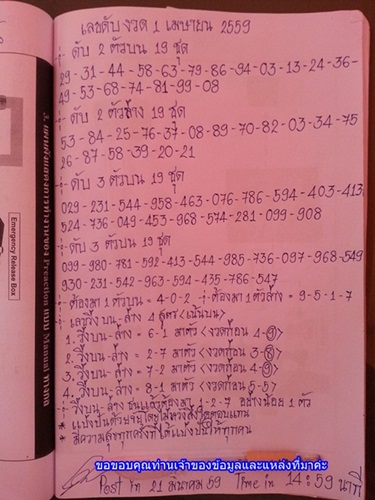 เลขดับงวด 1 เมษายน 2559
ดับ 2 ตัวบน 19 ชุด
29-31-44-58-63-79-86-94-03-13-24-36-
49-53-68-74-81-99-08
ดับ 2 ตัวล่าง 19 ชุด
53-84-25-76-37-08-89-70-82-03-34-75
26-87-58-39-20-21
ดับ 3 ตัวบน 19 ชุด
029-231-544-958-463-076-786-594-403-413
524-736-049-453-968-574-281-099-908
ดับ 3 ตัวบน 19 ชุด
099-980-781-592-413-544-985-736-097-968-549
930-231-542-963-594-435-786-547
ต้องมา 1 ตัวบน = 4-0-2 ต้องมา 1 ตัวล่าง = 9-5-1-7
เลขวิ่ง บน-ล่าง 4 สูตร <เน้นบน>
1. วิ่งบน-ล่าง = 6-1 มาตัว <งวดก่อน 4-9>
2. วิ่งบน-ล่าง = 2-7 มาตัว <งวดก่อน 3-8>
3. วิ่งบน-ล่าง = 7-2 มาตัว <งวดก่อน 4-9>
4. วิ่งบน-ล่าง = 8-1 มาตัว <งวดก่อน 5-5>
วิ่งบน-ล่าง ชนแล้วต้องมา 1-2-7 อย่างน้อย 1 ตัว
* มีความสุขทุกครั้งที่ได้แบ่งปันให้ทุกคน
Post in 21 มีนาคม 59 Time in 14:59 นาที
ขอขอบคุณท่านเจ้าของข้อมูลและแหล่งที่มาค่ะ
3. แผนผังแสดงการทำงานของ Preaction แบบ Manual ทางกล
Emergency Release Box